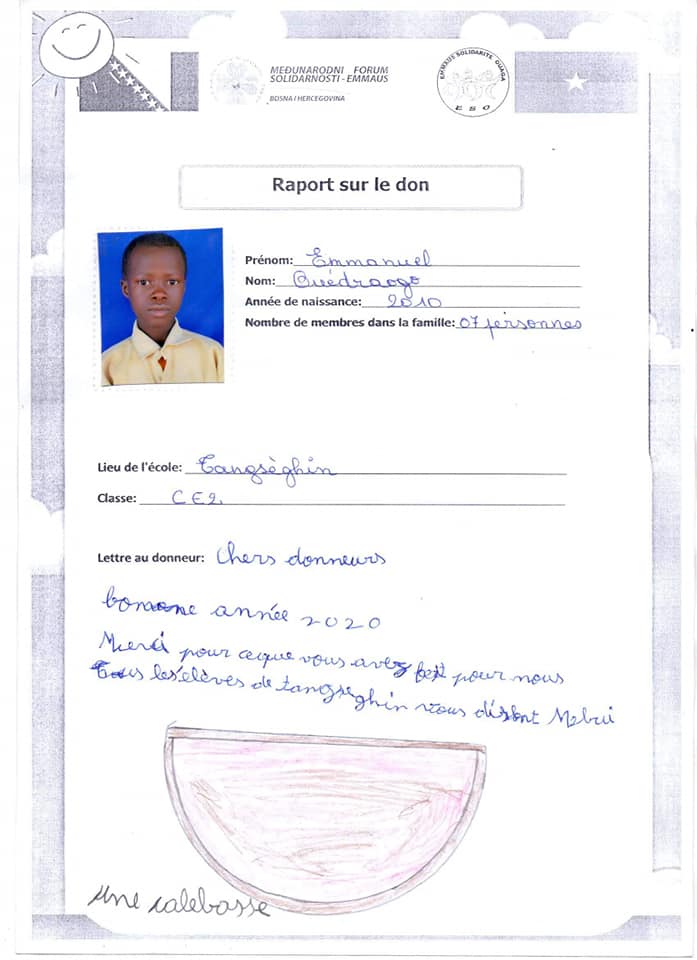 MEĐUNARODNI FORUM
SOLIDARNOSTI-EMMAUS
BOSNA I HERCEGOVINA
EMMAUS SOLIDARITE OUAGA
E S O
Raport sur le don
Prénom: Emmanuel
Nom: Ouédraogo
Année de naissance: 2010
Nombre de membres dans la famille: 07 personnes
Lieu de l'école: Tangsèghin
Classe: CE2.
Lettre au donneur: Chers donneurs
bonne année 2020
Merci pour ceque vous avez fait pour nous
Tous les élèves de tangseghin vous disont Merci
Une calebasse